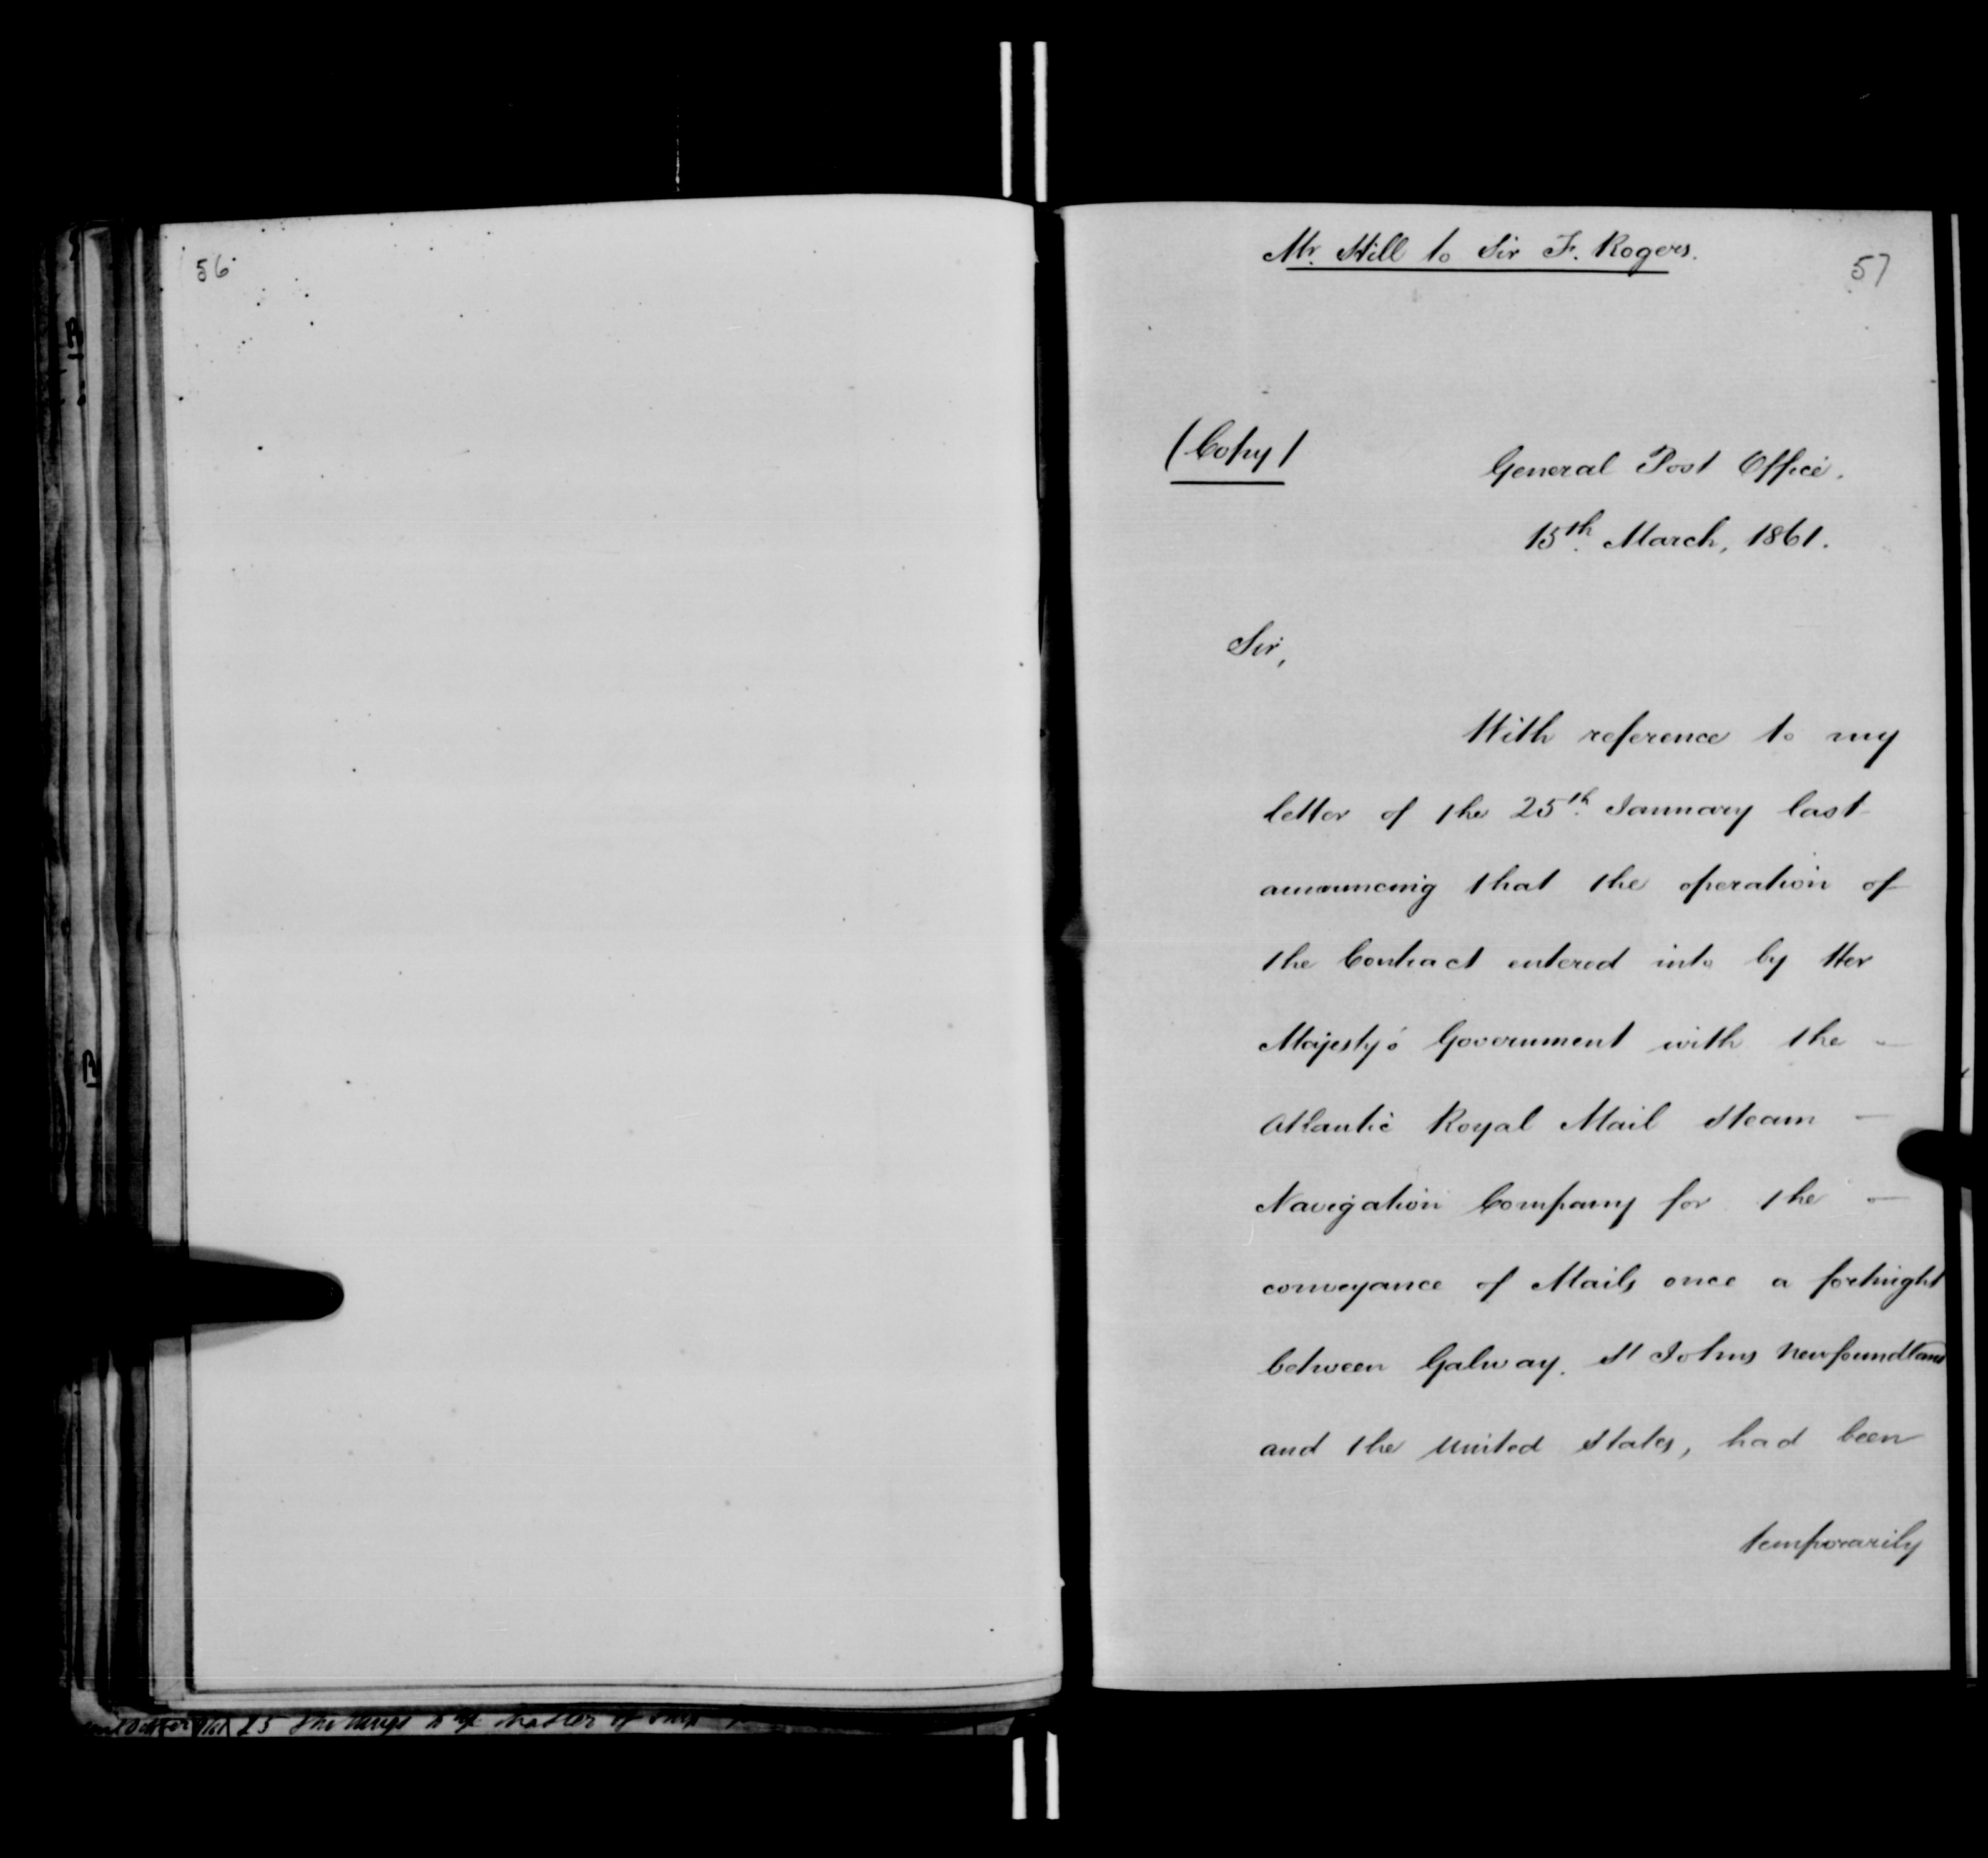 56
Mr. Hill to Sir F. Rogers.
57
(Copy)
General Post Office.
15th. March, 1861.
Sir,
With reference to my
letter of the 25th. January last
announcing that the operation of
the Contract entered into by Her
Majesty's Government with the -
Atlantic Royal Mail Steam -
Navigation Company for the -
conveyance of Mails once a fortnight
between Galway. St Johns Newfoundland
and the United States, had been
temporarily